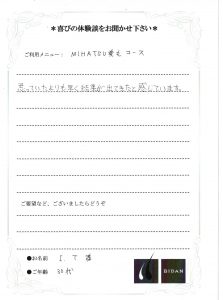 ＊喜びの体験談をお聞かせ下さい＊
ご利用メニュー： MIHATSU発毛コース
思っていたよりも早く結果が出てきたと感じています。
ご要望など、ございましたらどうぞ
●お名前 I. T 様
●ご年齢 30代
BIDAN